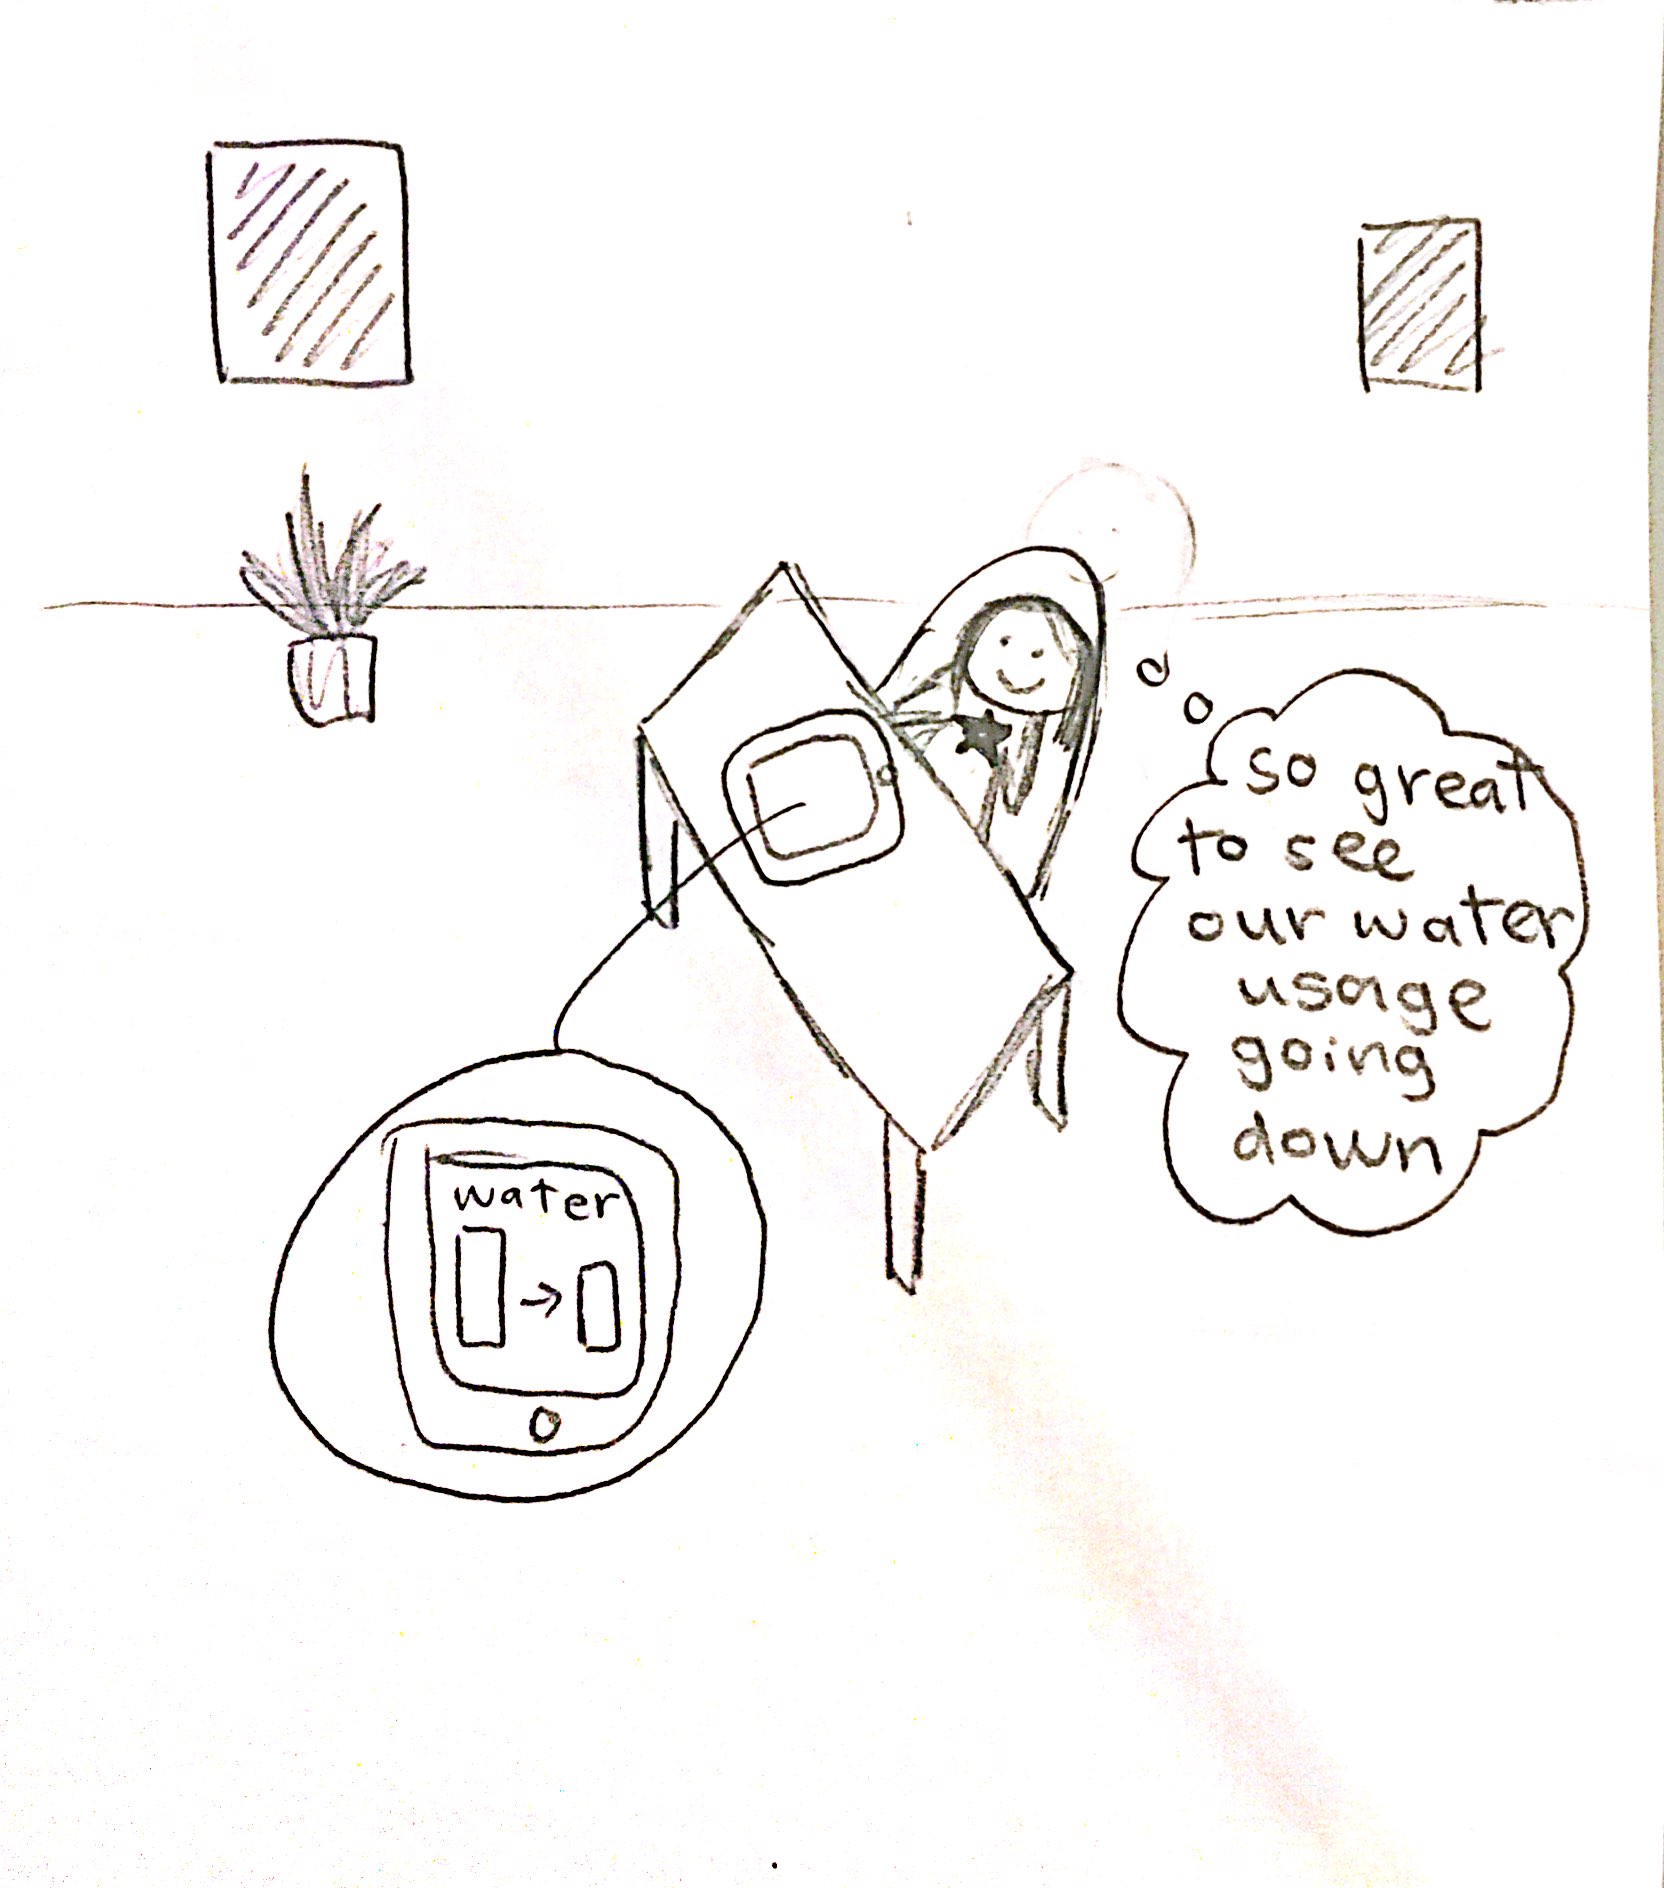 so great
to see
our water
usage
going
down
water